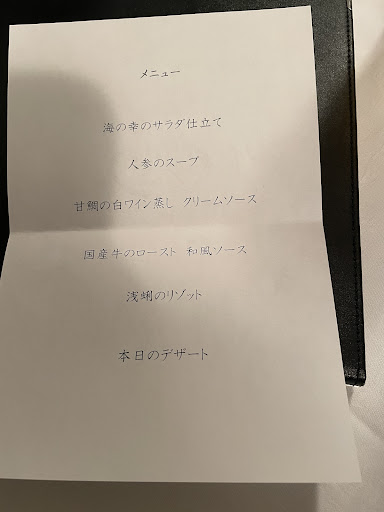 メニュー
海の幸のサラダ仕立て
人参のスープ
甘鯛の白ワイン蒸し クリームソース
国産牛のロースト 和風ソース
浅蜊のリゾット
本日のデザート